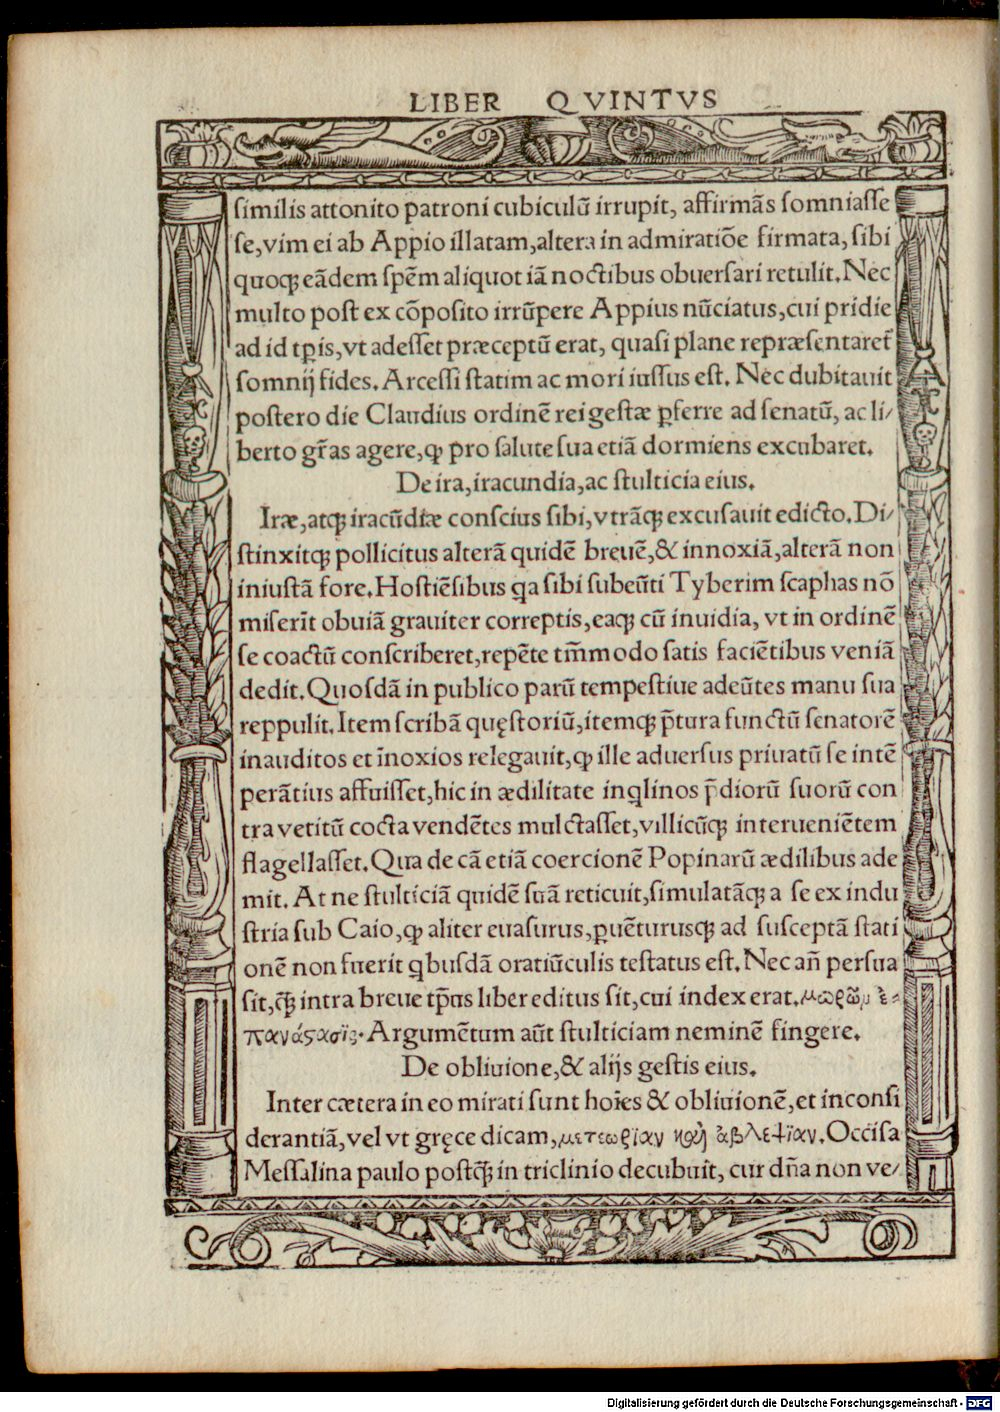 LIBER QVINTVS
ſimilis attonito patroni cubiculũ irrupit, affirmãs ſomniaſſe
ſe,vim ei ab Appio illatam,altera in admiratiõe firmata, ſibi
quoqꝫ eãdem ſpẽm aliquot iã noctibus obuerſari retulit.Nec
multo poſt ex cõpoſito irrũpere Appius nũciatus,cui pridie
ad id tꝑis,vt adeſſet præceptũ erat, quaſi plane repræſentaret̃
ſomnij fides.Arceſſi ſtatim ac mori iuſſus eſt. Nec dubitauit
poſtero die Claudius ordinẽ rei geſtæ ꝑferre ad ſenatũ, ac li/
berto gr̃as agere,ꝙ pro ſalute ſua etiã dormiens excubaret.
De ira,iracundia,ac ſtulticia eius.
Iræ,atqꝫ iracũdiæ conſcius ſibi,vtrãqꝫ excuſauit edicto.Di/
ſtinxitqꝫ pollicitus alterã quidẽ breuẽ,& innoxiã,alterã non
iniuſtã fore.Hoſtiẽſibus ꝗa ſibi ſubeũti Tyberim ſcaphas nõ
miſerĩt obuiã grauiter correptis,eaqꝫ cũ inuidia, vt in ordinẽ
ſe coactũ conſcriberet,repẽte tm̃modo ſatis faciẽtibus veniã
dedit.Quoſdã in publico parũ tempeſtiue adeũtes manu ſua
reppulit.Item ſcribã quęſtoriũ,itemqꝫ p̃tura functũ ſenatorẽ
inauditos et ĩnoxios relegauit,ꝙ ille aduerſus priuatũ ſe intẽ
perãtius affuiſſet,hic in ædilitate inꝗlinos p̃diorũ ſuorũ con
tra vetitũ cocta vendẽtes mulctaſſet,villicũqꝫ interueniẽtem
flagellaſſet.Qua de cã etiã coercionẽ Popinarũ ædilibus ade
mit. At ne ſtulticiã quidẽ ſuã reticuit,ſimulatãqꝫ a ſe ex indu
ſtria ſub Caio,ꝙ aliter euaſurus,ꝑuẽturusqꝫ ad ſuſceptã ſtati
onẽ non fuerit ꝗbuſdã oratiũculis teſtatus eſt.Nec añ perſua
ſit,q̃ꝫ intra breue tp̃us liber editus ſit,cui index erat.μωρῶμ ἐ-
πανάϛασϊς.Argumẽtum aũt ſtulticiam neminẽ fingere.
De obliuione,& alijs geſtis eius.
Inter cætera in eo mirati ſunt hoĩes & obliuionẽ,et inconſi
derantiã,vel vt gręce dicam,μετεωρίαν καὶ ἀβλεψίαν.Occiſa
Meſſalina paulo poſtq̃ꝫ in triclinio decubuit, cur dña non ve/
Digitalisierung gefördert durch die Deutsche Forschungsgemeinschaft - DFG